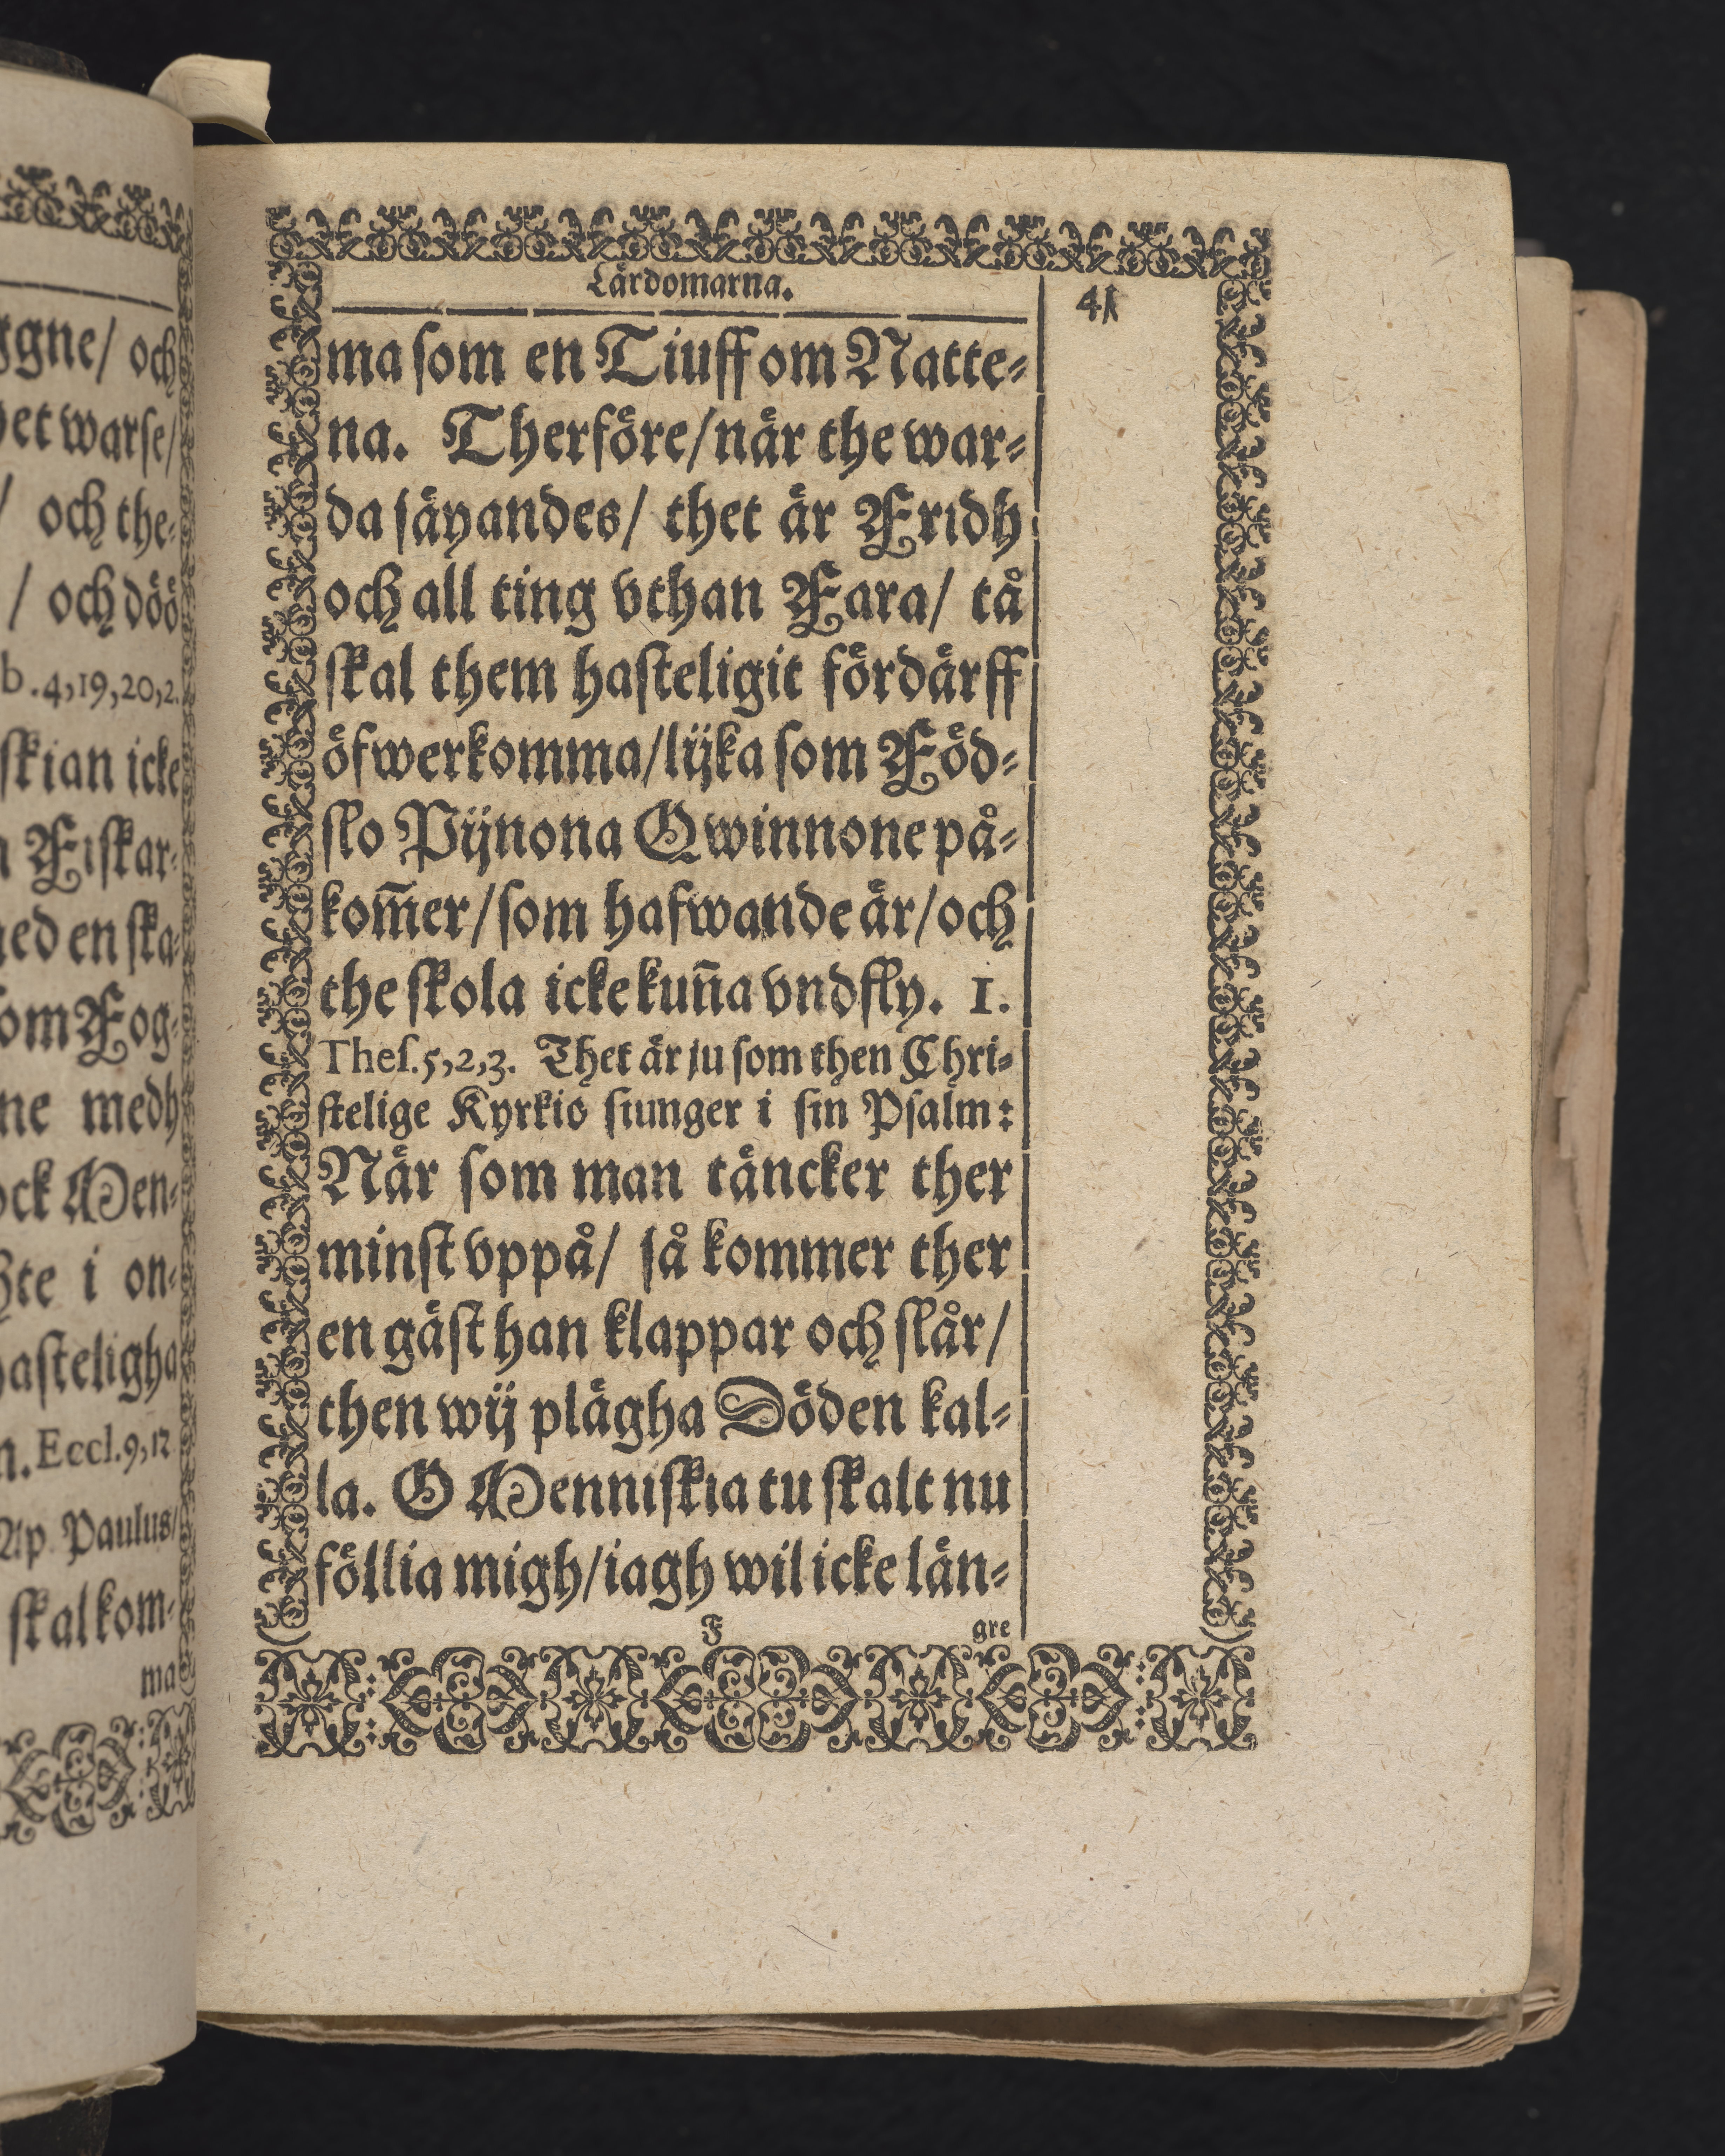 gne/ och
et warse/
/ och the-
/ och döö
b. 4,19,20,2.
skian icke
Fiskar-
ed en ska-
om Fog-
ne medh
ock Men-
te i on-
hasteligha
n. Eccl. 9,12
Ap. Paulus/
skal kom-
ma
Lärdomarna.
41
ma som en Tiuff om Natte-
na. Therföre/ när the war-
da säyandes/ thet är Fridh
och all ting vthan Fara/ tå
skal them hasteligit fördärff
öfwerkomma/ lijka som Föd-
slo Pijnona Qwinnone på-
kom̃er/ som hafwande är/ och
the skola icke kun̄a vndfly. 1.
Thes. 5,2,3. Thet är ju som then Chri-
stelige Kyrkio siunger i sin Psalm:
När som man täncker ther
minst vppå/ så kommer ther
en gäst han klappar och slår/
then wij plägha Döden kal-
la. O Menniskia tu skalt nu
föllia migh/ iagh wil icke län-
F
gre